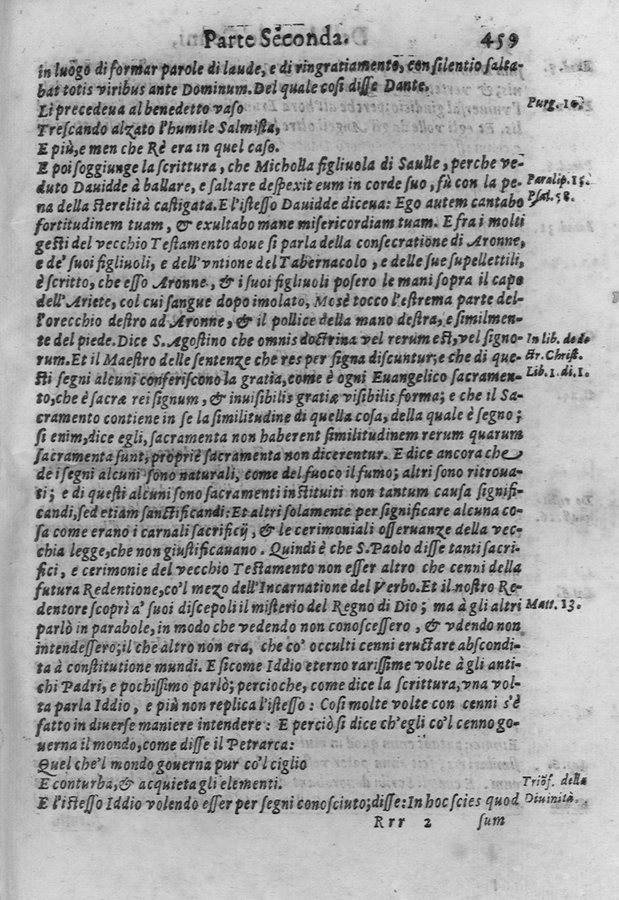 Parte Seconda. 459
in luogo di formar parole di laude, e di ringratiamento, con silentio salta-
bat totis viribus ante Dominum. Del quale così disse Dante.
Lì precedeua al benedetto vaso Purg. 10.
Trescando alzato l'humile Salmista,
E più, e men che Rè era in quel caso.
E poi soggiunge la scrittura, che Micholla figliuola di Saulle, perche ve-
duto Dauidde à ballare, e saltare despexit eum in corde suo, fù con la pe- Paralip. 15.
na della sterelità castigata. E l'istesso Dauidde diceua: Ego autem cantabo Psal. 58.
fortitudinem tuam, & exultabo mane misericordiam tuam. E fra i molti
gesti del vecchio Testamento doue si parla della consecratione di Aronne,
e de' suoi figliuoli, e dell'vntione del Tabernacolo, e delle sue supellettili,
è scritto, che esso Aronne, & i suoi figliuoli posero le mani sopra il capo
dell'Ariete, col cui sangue dopo imolato, Mosè tocco l'estrema parte del-
l'orecchio destro ad Aronne, & il pollice della mano destra, e similmen-
te del piede. Dice S. Agostino che omnis doctrina vel rerum est, vel signo- In lib. de do
rum. Et il Maestro delle sentenze che res per signa discuntur; e che di que- ctr. Christ.
sti segni alcuni conferiscono la gratia, come è ogni Euangelico sacramen- Lib. 1. di. 1.
to, che è sacræ rei signum, & inuisibilis gratiæ visibilis forma; e che il Sa-
cramento contiene in se la similitudine di quella cosa, della quale è segno;
si enim, dice egli, sacramenta non haberent similitudinem rerum quarum
sacramenta sunt, propriè sacramenta non dicerentur. E dice ancora che
de i segni alcuni sono naturali, come del fuoco il fumo; altri sono ritroua-
ti; e di questi alcuni sono sacramenti instituiti non tantum causa signifi-
candi, sed etiam sanctificandi: Et altri solamente per significare alcuna co-
sa come erano i carnali sacrificij, & le cerimoniali osseruanze della vec-
chia legge, che non giustificauano. Quindi è che S. Paolo disse tanti sacri-
fici, e cerimonie del vecchio Testamento non esser altro che cenni della
futura Redentione, co'l mezo dell'Incarnatione del Verbo. Et il nostro Re-
dentore scoprì a' suoi discepoli il misterio del Regno di Dio; ma à gli altri Matt. 13.
parlò in parabole, in modo che vedendo non conoscessero, & vdendo non
intendessero; il che altro non era, che co' occulti cenni eructare abscondi-
ta à constitutione mundi. E sicome Iddio eterno rarissime volte à gli anti-
chi Padri, e pochissimo parlò; percioche, come dice la scrittura, vna vol-
ta parla Iddio, e più non replica l'istesso: Così molte volte con cenni s'è
fatto in diuerse maniere intendere: E perciò si dice ch'egli co'l cenno go-
uerna il mondo, come disse il Petrarca:
Quel che'l mondo gouerna pur co'l ciglio
E conturba, & acquieta gli elementi. Triōf. della
E l'istesso Iddio volendo esser per segni conosciuto; disse: In hoc scies quod Diuinità.
Rrr 2 sum